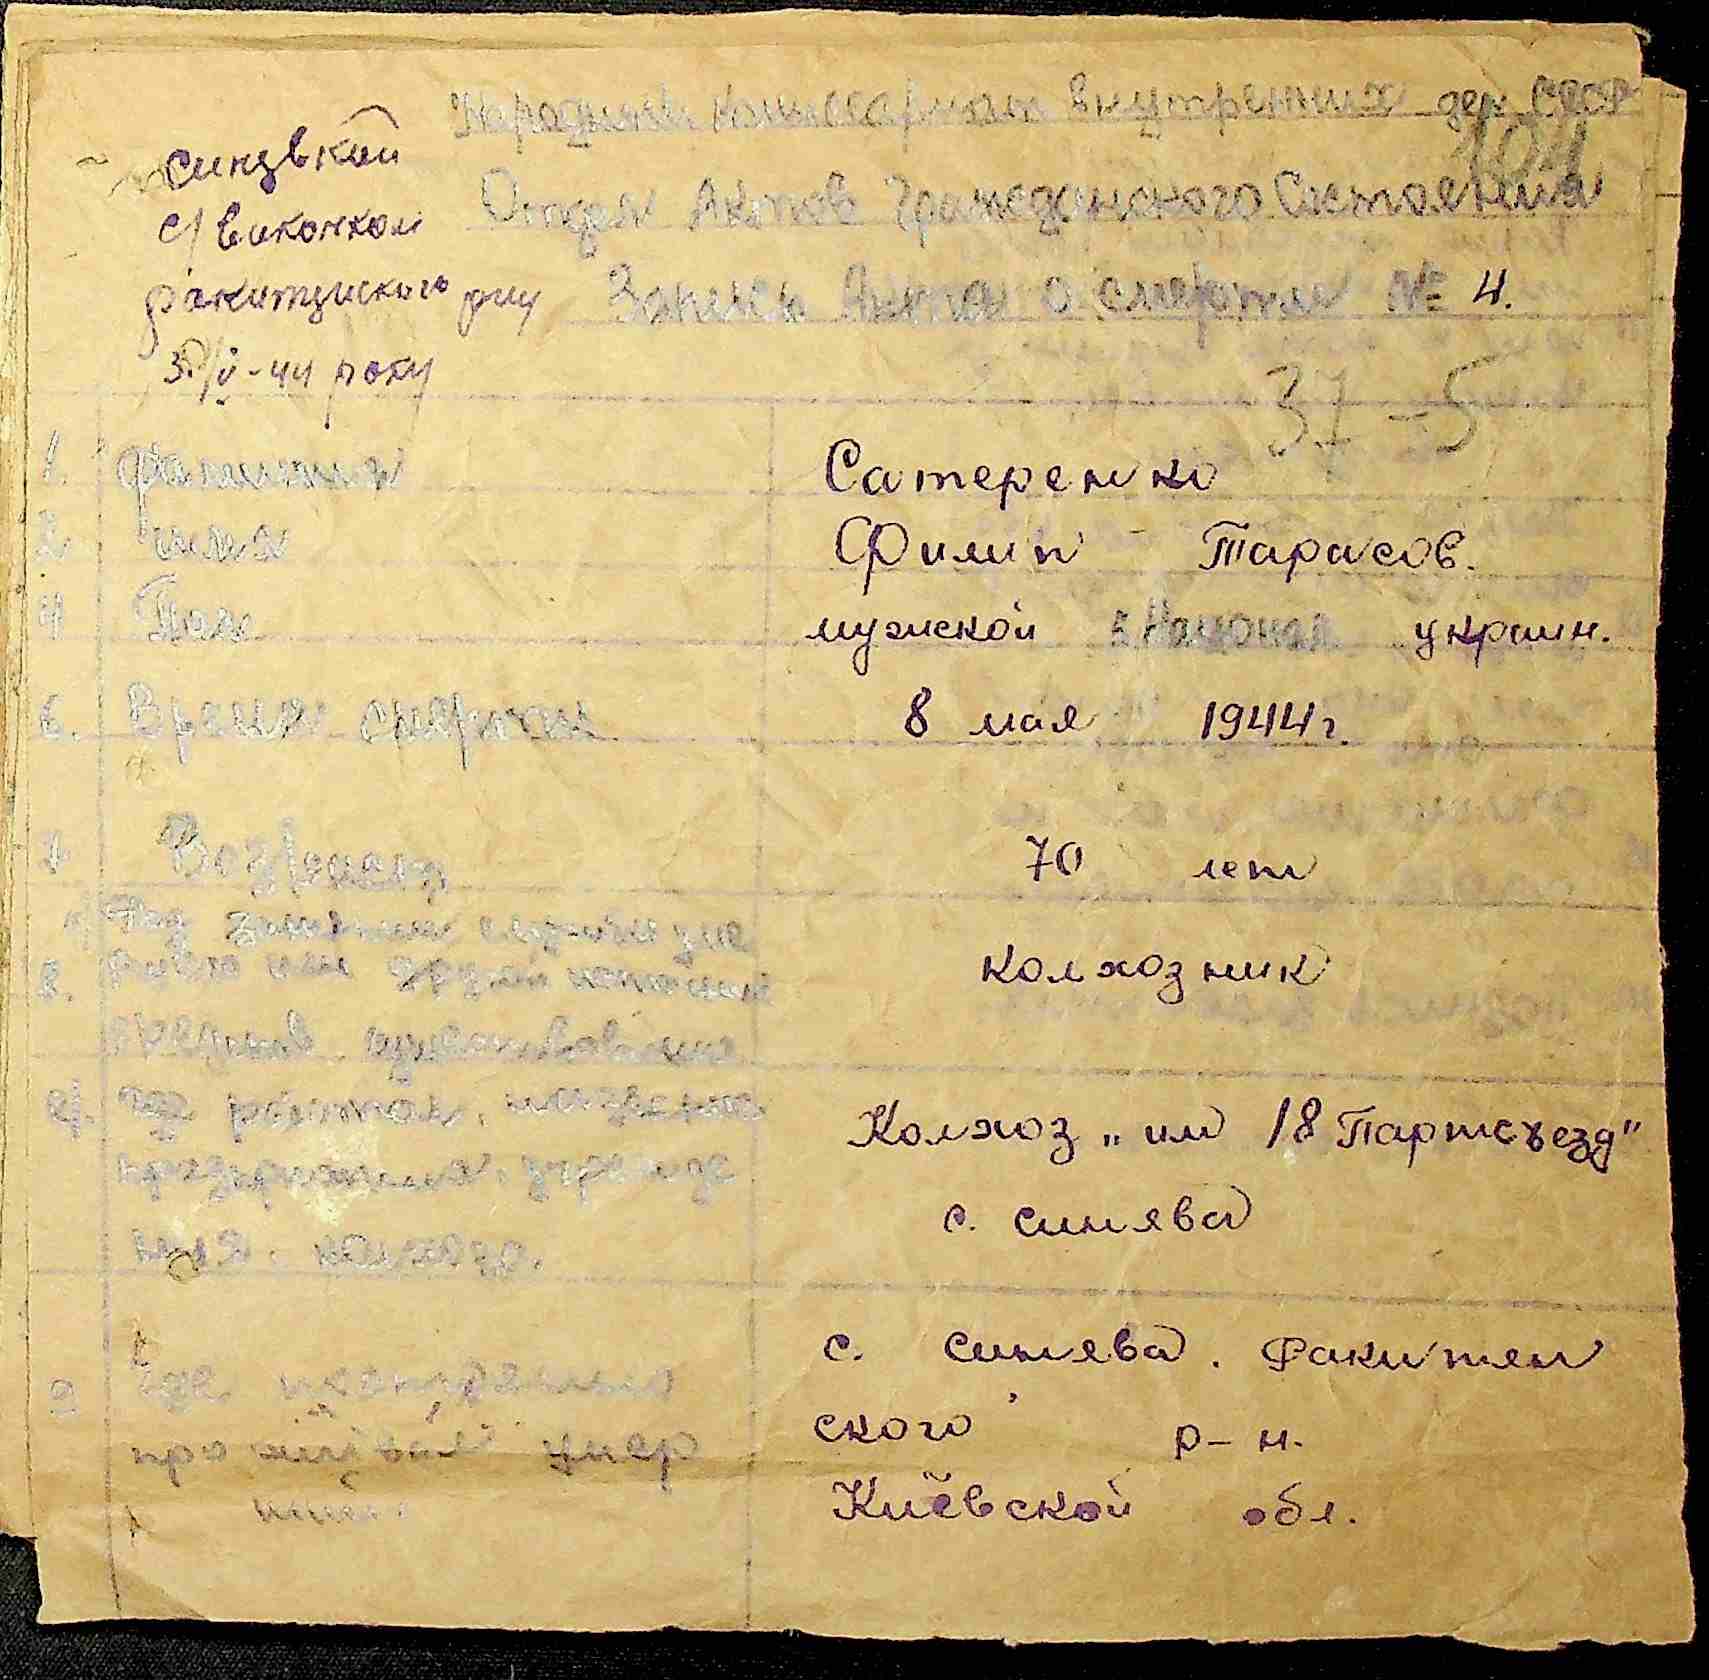 Народный комиссариат внутренних дел СССР
104
синявкий
с/виконком
ракитянского р-ну
30/V-44 року
Отдел Актов Гражданского Состояния
Запись Акта о смерти № 4.
37-5
1. Фамилия Сатеренко
2 имя Филип Тарасов.
4 Пол мужской 5 Национал украин.
6. Время смерти 8 мая 1944г.
7 Возраст 70 лет
8. колхозник
где работал,
предприятия, учрежде
ния. колхоза.
Колхоз „им 18 Партсъезд"
с. синява
9 где
проживал умер
ший.
с. синява. Ракитян
ского р-н.
Киевской обл.